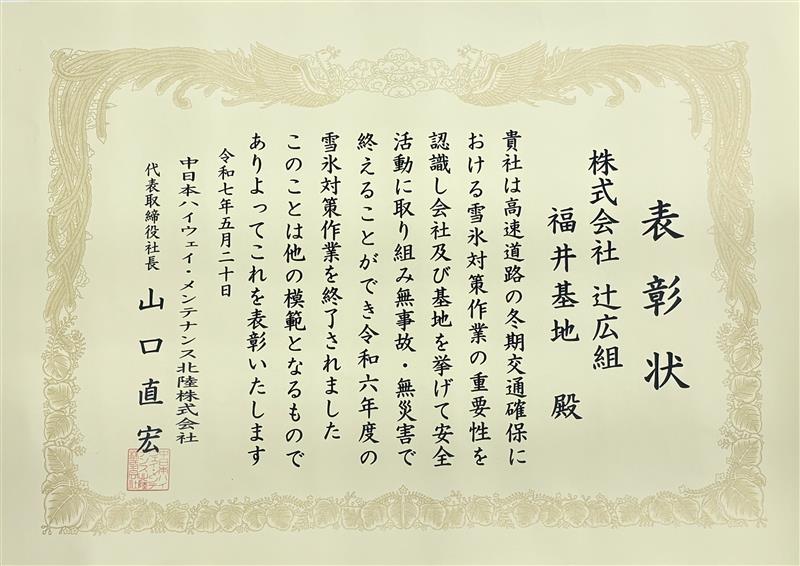 表彰状
株式会社 辻広組
福井基地 殿
貴社は高速道路の冬期交通確保に
おける雪氷対策作業の重要性を
認識し会社及び基地を挙げて安全
活動に取り組み無事故・無災害で
終えることができ令和六年度の
雪氷対策作業を終了されました
このことは他の模範となるもので
ありよってこれを表彰いたします
令和七年五月二十日
中日本ハイウェイ・メンテナンス北陸株式会社
代表取締役社長 山口直宏